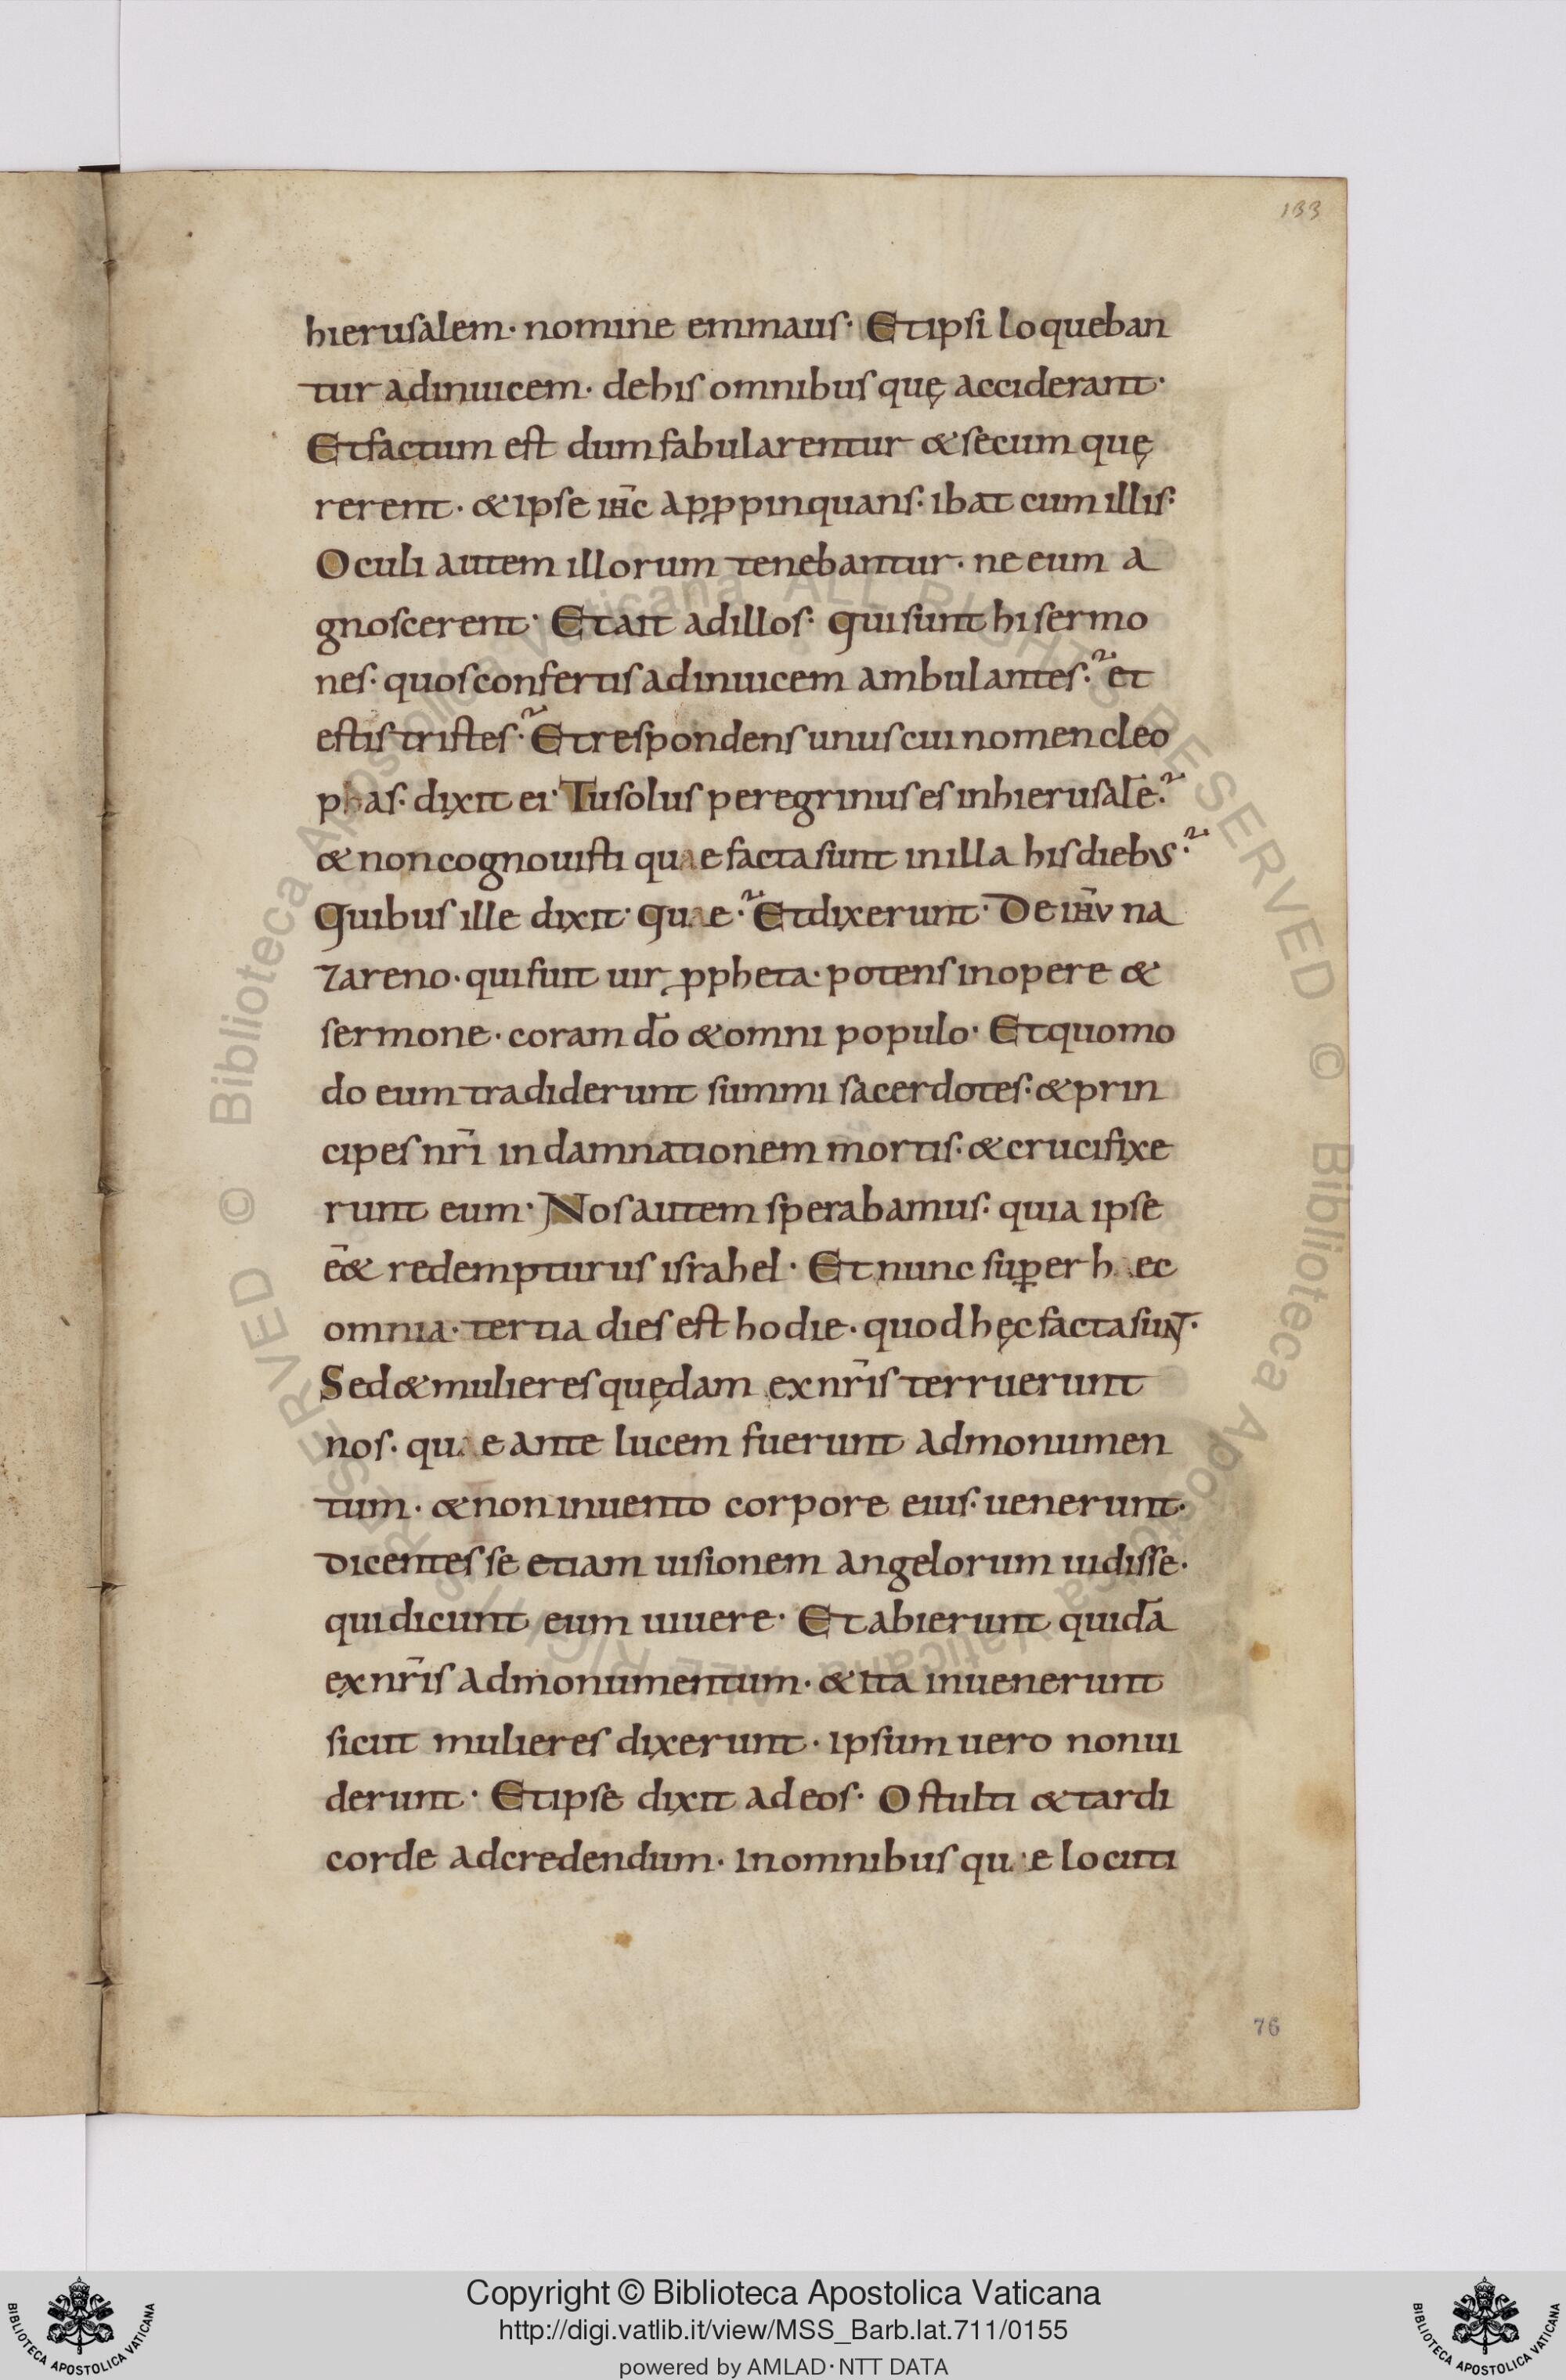 133
hierusalem· nomine emmaus· Et ipsi loqueban
tur adinuicem· de his omnibus quę acciderant·
Et factum est dum fabularentur & secum quę
rerent· & ipse ih̅c appropinquans· ibat cum illis·
Oculi autem illorum tenebantur· ne eum a
gnoscerent· Et ait ad illos· Qui sunt hi sermo
nes· quos confertis adinuicem ambulantes·? et
estis tristes·? Et respondens unus cui nomen cleo
phas· dixit ei· Tu solus peregrinus es in hierusale̅·?
& non cognouisti quae facta sunt in illa his diebus·?
Quibus ille dixit· Quae·? Et dixerunt· De ih̅u na
zareno· qui fuit uir ꝓpheta· potens in opere &
sermone· coram do̅ & omni populo· Et quomo
do eum tradiderunt summi sacerdotes· & prin
cipes nr̅i in damnationem mortis· & crucifixe
runt eum· Nos autem sperabamus· quia ipse
e̅& redempturus israhel· Et nunc super haec
omnia· tertia dies est hodie· quod hęc facta sunt·
Sed & mulieres quędam ex nr̅is terruerunt
nos· quae ante lucem fuerunt ad monumen
tum· & non inuento corpore eius· uenerunt·
dicentes se etiam uisionem angelorum uidisse·
qui dicunt eum uiuere· Et abierunt quida̅
ex nr̅is ad monumentum· & ita inuenerunt
sicut mulieres dixerunt· ipsum uero non ui
derunt· Et ipse dixit ad eos· O stulti & tardi
corde ad credendum· in omnibus quae locuti
76
© Biblioteca Apostolica Vaticana ALL RIGHTS RESERVED © Biblioteca Apostolica Vaticana ALL RIGHTS RESERVED
Copyright © Biblioteca Apostolica Vaticana
http://digi.vatlib.it/view/MSS_Barb.lat.711/0155
powered by AMLAD·NTT DATA
BIBLIOTECA APOSTOLICA VATICANA
BIBLIOTECA APOSTOLICA VATICANA